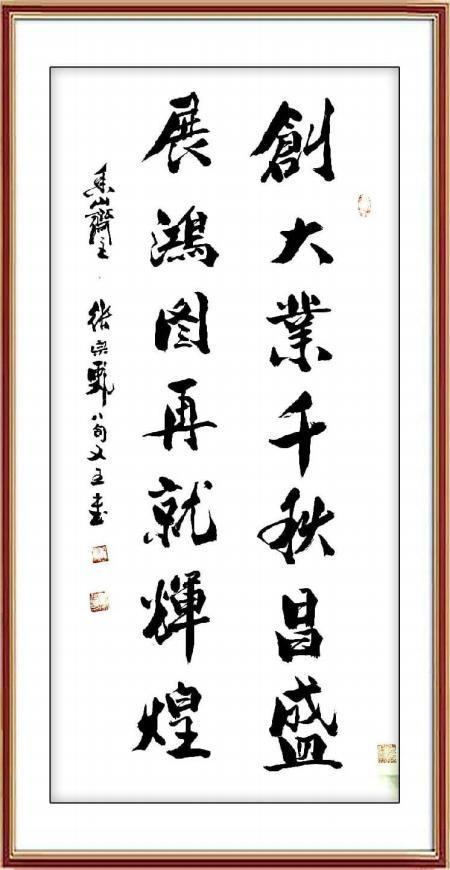 創大業千秋昌盛
展鴻图再就輝煌
山齋主 張宗甄 八旬又五書